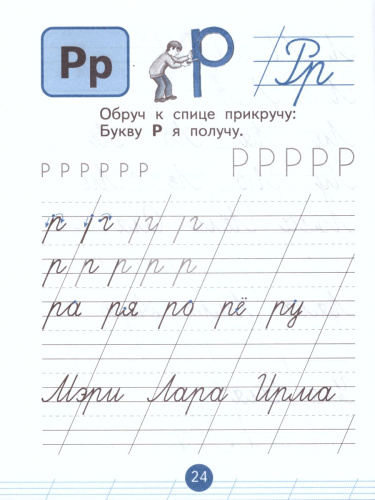 Рр р Рр
Обруч к спице прикручу:
Букву Р я получу.
Р Р Р Р Р Р Р Р Р Р Р
р р р р
р р р р р
ра ря ро рё ру
Мэри Лара Ирма
24